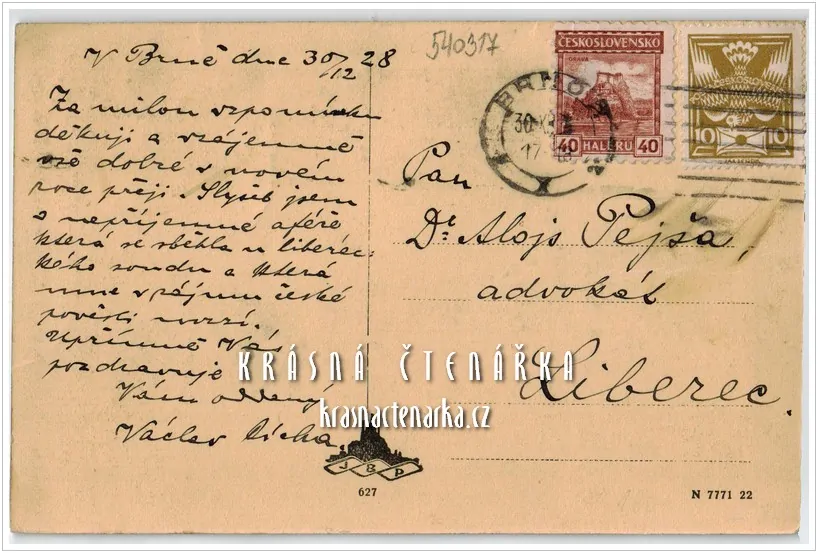 V Brně dne 30/12 28
Za milou vzpomínku
děkuji a vzájemně
vše dobré v novém
roce přeji. Slyšel jsem
o nepříjemné aféře
která se sběhla u liberec-
kého soudu a která
mne v zájmu české
pověsti mrzí.
Upřímně Vás
pozdravuje
Vám oddaný
Václav
540317
ČESKOSLOVENSKO
ORAVA
40 HALÉŘŮ 40
10 10
BRNO
30.XII
17
Pan
Dr Alojs Pejša,
advokát
Liberec.
KRÁSNÁ ČTENÁŘKA
krasnactenarka.cz
J B P
627
N 7771 22